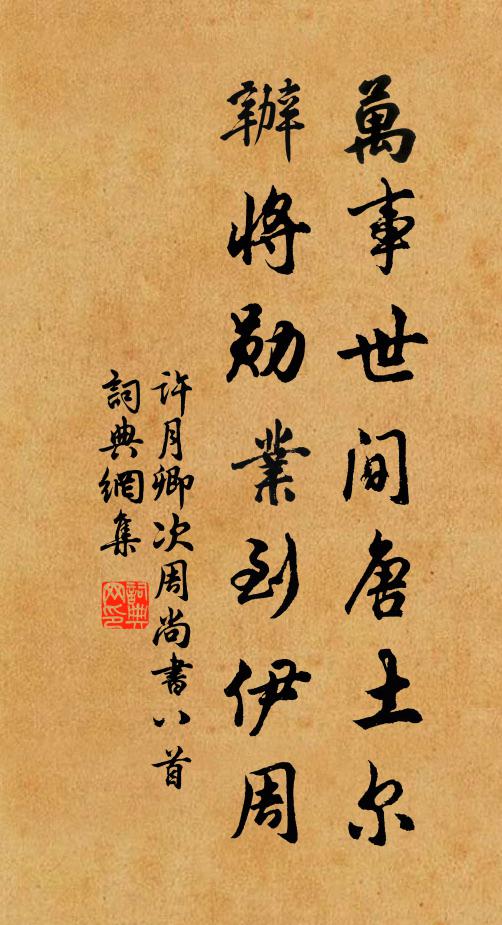 萬事世間唐土尔
辦將勛業到伊周
許月卿次周尚書八首
詞典網集
詞典
网印